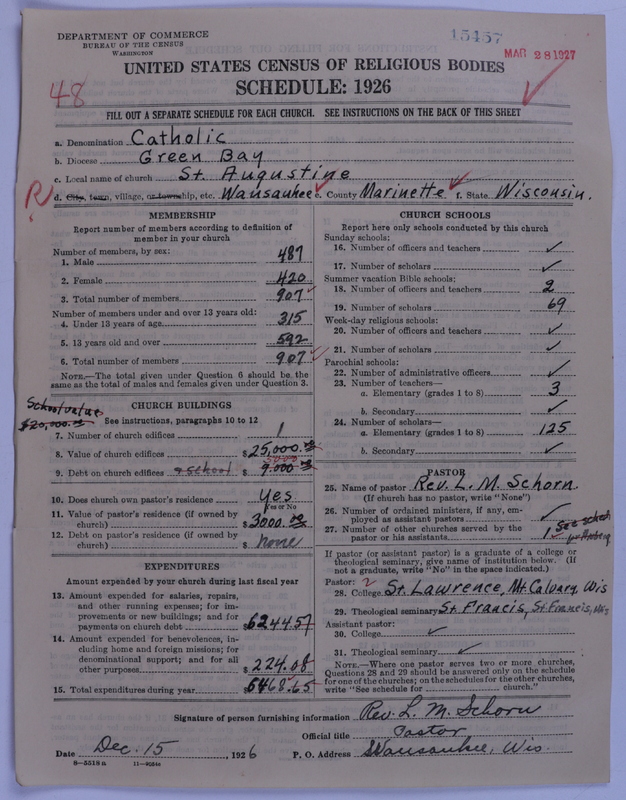 DEPARTMENT OF COMMERCE
BUREAU OF THE CENSUS
WASHINGTON
15457
MAR 28 1927
UNITED STATES CENSUS OF RELIGIOUS BODIES
SCHEDULE: 1926
48
FILL OUT A SEPARATE SCHEDULE FOR EACH CHURCH. SEE INSTRUCTIONS ON THE BACK OF THIS SHEET
a. Denomination Catholic
b. Diocese Green Bay
c. Local name of church St. Augustine
R
d. City, town, village, or township, etc. Wausaukee e. County Marinette f. State Wisconsin.
MEMBERSHIP
Report number of members according to definition of
member in your church
Number of members, by sex:
1. Male 487
2. Female 420
3. Total number of members 907
Number of members under and over 13 years old:
4. Under 13 years of age 315
5. 13 years old and over 592
6. Total number of members 907
NOTE.—The total given under Question 6 should be the
same as the total of males and females given under Question 3.
School value
$20,000.00
CHURCH BUILDINGS
See instructions, paragraphs 10 to 12
7. Number of church edifices 1
8. Value of church edifices $25,000.00
9. Debt on church edifices & School $9.000
10. Does church own pastor's residence yes
Yes or No
11. Value of pastor's residence (if owned by
church) $3000.00
12. Debt on pastor's residence (if owned by
church) $none
EXPENDITURES
Amount expended by your church during last fiscal year
13. Amount expended for salaries, repairs,
and other running expenses; for im-
provements or new buildings; and for
payments on church debt $6244.57
14. Amount expended for benevolences, in-
cluding home and foreign missions; for
denominational support; and for all
other purposes $224.08
15. Total expenditures during year $6468.65
CHURCH SCHOOLS
Report here only schools conducted by this church
Sunday schools:
16. Number of officers and teachers ✓
17. Number of scholars ✓
Summer vacation Bible schools:
18. Number of officers and teachers 2
19. Number of scholars 69
Week-day religious schools:
20. Number of officers and teachers ✓
21. Number of scholars ✓
Parochial schools:
22. Number of administrative officers ✓
23. Number of teachers—
a. Elementary (grades 1 to 8) 3
b. Secondary ✓
24. Number of scholars—
a. Elementary (grades 1 to 8) 125
b. Secondary ✓
PASTOR
25. Name of pastor Rev. L. M. Schorn.
(If church has no pastor, write "None")
26. Number of ordained ministers, if any, em-
ployed as assistant pastors ✓
27. Number of other churches served by the
pastor or his assistants 1 See sched.
If pastor (or assistant pastor) is a graduate of a college or
theological seminary, give name of institution below. (If
not a graduate, write "No" in the space indicated.)
Pastor: 2
28. College St. Lawrence, Mt. Calvary, Wis
29. Theological seminary St. Francis, St. Francis, Wis
Assistant pastor:
30. College ✓
31. Theological seminary ✓
NOTE.—Where one pastor serves two or more churches,
Questions 28 and 29 should be answered only on the schedule
for one of the churches; on the schedules for the other churches,
write "See schedule for church."
Signature of person furnishing information Rev. L. M. Schorn
Official title Pastor
Date Dec. 15, 1926 P. O. Address Wausaukee, Wis.
8—5518 a